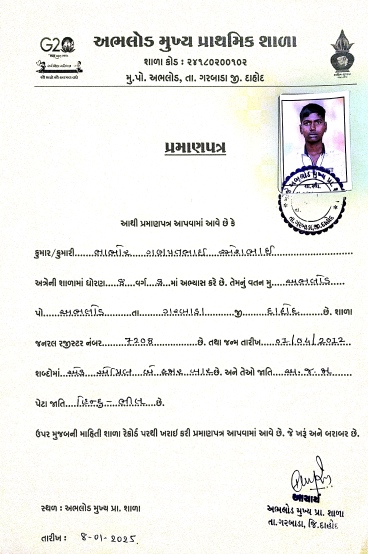 G20
અભલોડ મુખ્ય પ્રાથમિક શાળા
શાળા કોડ : ૨૪૧૮૦૨૦૦૧૦૨
મુ.પો. અભલોડ, તા. ગરબાડા જી. દાહોદ
પ્રમાણપત્ર
આથી પ્રમાણપત્ર આપવામાં આવે છે કે
કુમાર/કુમારી ભાભોર ગણપતભાઈ રમેશભાઈ
અત્રેની શાળામાં ધોરણ વર્ગ માં અભ્યાસ કરે છે. તેમનું વતન મુ. અભલોડ
પો. અભલોડ તા ગરબાડા જી દાહોદ છે. શાળા
જનરલ રજીસ્ટર નંબર 7208 છે. તથા જન્મ તારીખ 01/04/2012
શબ્દોમાં એક એપ્રિલ બે હજાર બાર છે. અને તેઓ જાતિ અ.જ.જા
પેટા જાતિ હિન્દુ - ભીલ છે.
ઉપર મુજબની માહિતી શાળા રેકોર્ડ પરથી ખરાઈ કરી પ્રમાણપત્ર આપવામાં આવે છે. જે ખરૂં અને બરાબર છે.
આચાર્ય
સ્થળ : અભલોડ મુખ્ય પ્રા. શાળા
અભલોડ મુખ્ય પ્રા. શાળા
તા.ગરબાડા, જિ.દાહોદ
તારીખ : 8-01-2025